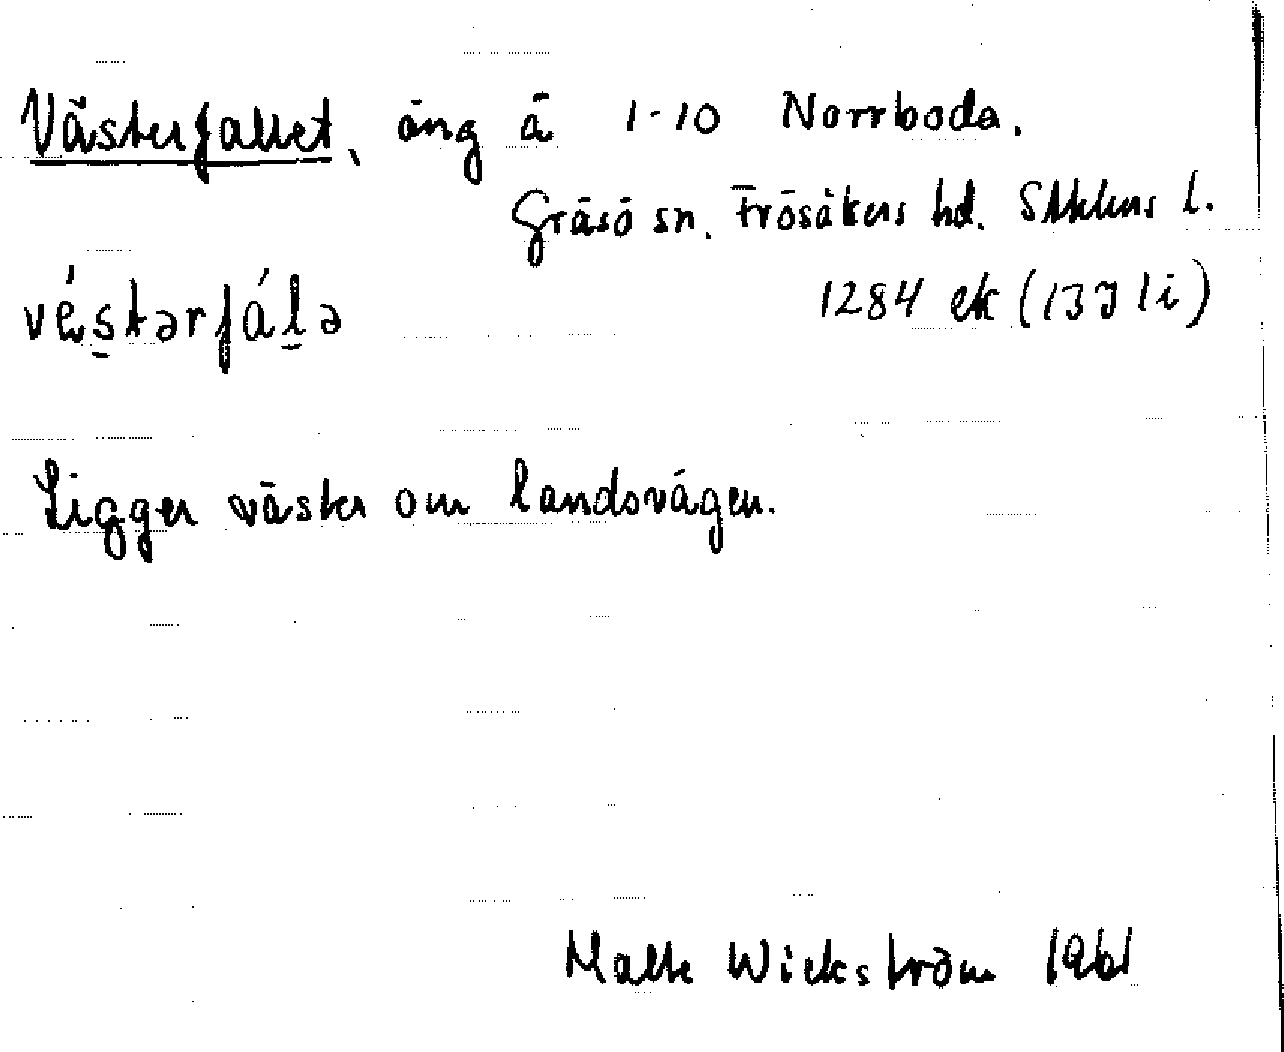 Västerfallet, äng å 1-10 Norrboda.
Gräsö sn. Frösåkers hd. Sthlms l.
véstərfálə
1284 ek (13J 1i)
Ligger väster om landsvägen.
Malte Wickström 1961